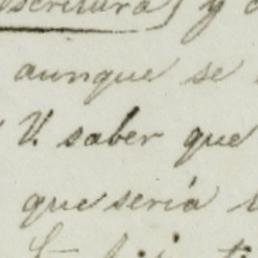 escritura) y
aunque se
V. saber que
que sería